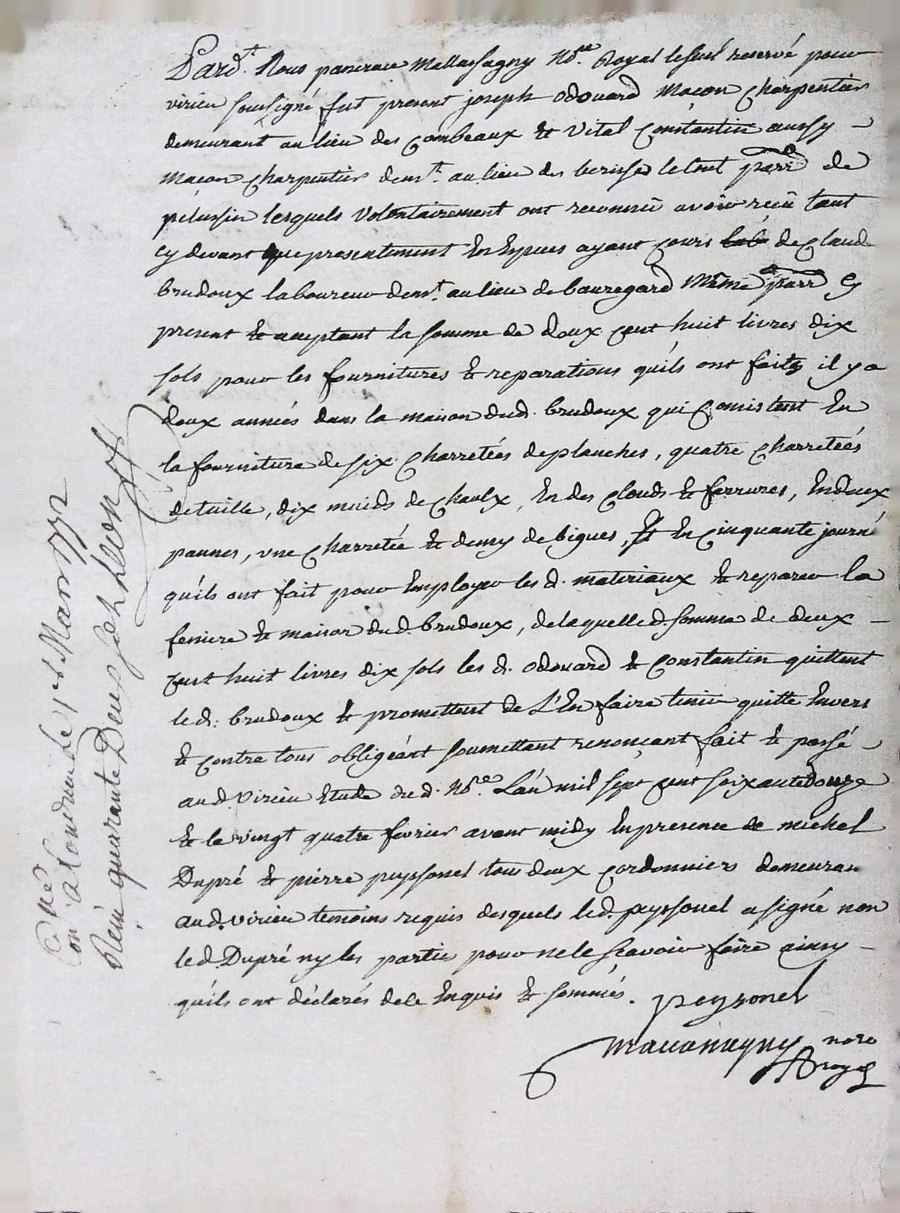 Pard.t Nous pancrace Mallassagny N.re Royal reservé pour
virieu soussigné fut present joseph odouard macon charpentier
demeurant au lieu des Combeaux & vital Constantin aussy
macon charpentier dem.t au lieu des le tout parr de
pelussin lesquels volontairement ont reconnu avoir recu tant
cy devant que presentement En Especes ayant cours de claude
brudoux laboureur dem.t au lieu de bauregard même parr cy
present & acceptant la somme de deux cent huit livres dix
sols pour les fournitures & reparations quils ont faits il y a
deux années dans la maison dud. brudoux qui consistent En
la fourniture de six charretées de planches, quatre charretées
de tuille, dix muids de chaulx, En des clouds & ferrures, En deux
pannes, une charretée & demy de bigues, & En cinquante journé
quils ont fait pour Employer les d. materiaux & reparer la
feniere & maison dud. brudoux, de laquelle d. somme de deux
cent huit livres dix sols les d. odouard & constantin quittent
le d. brudoux & promettent de L'En faire tenir quitte Envers
& contre tous obligéant soumettant renonçant fait & passé
aud. virieu Etude dud. N.re L'an mil sept cent soixante douze
& le vingt quatre fevrier avant midy En presence de michel
Dupré & pierre peyssonel tous deux cordonniers demeuran
aud. virieu temoins requis desquels led. peyssonel a signé non
led. Dupré ny les partie pour ne le scavoir faire ainsy
quils ont déclarés de le Enquis & sommés. peyssonel
nore
royal
C.né
à Condrieu le 1er Mars 1772
Reçu quarante Deux sols